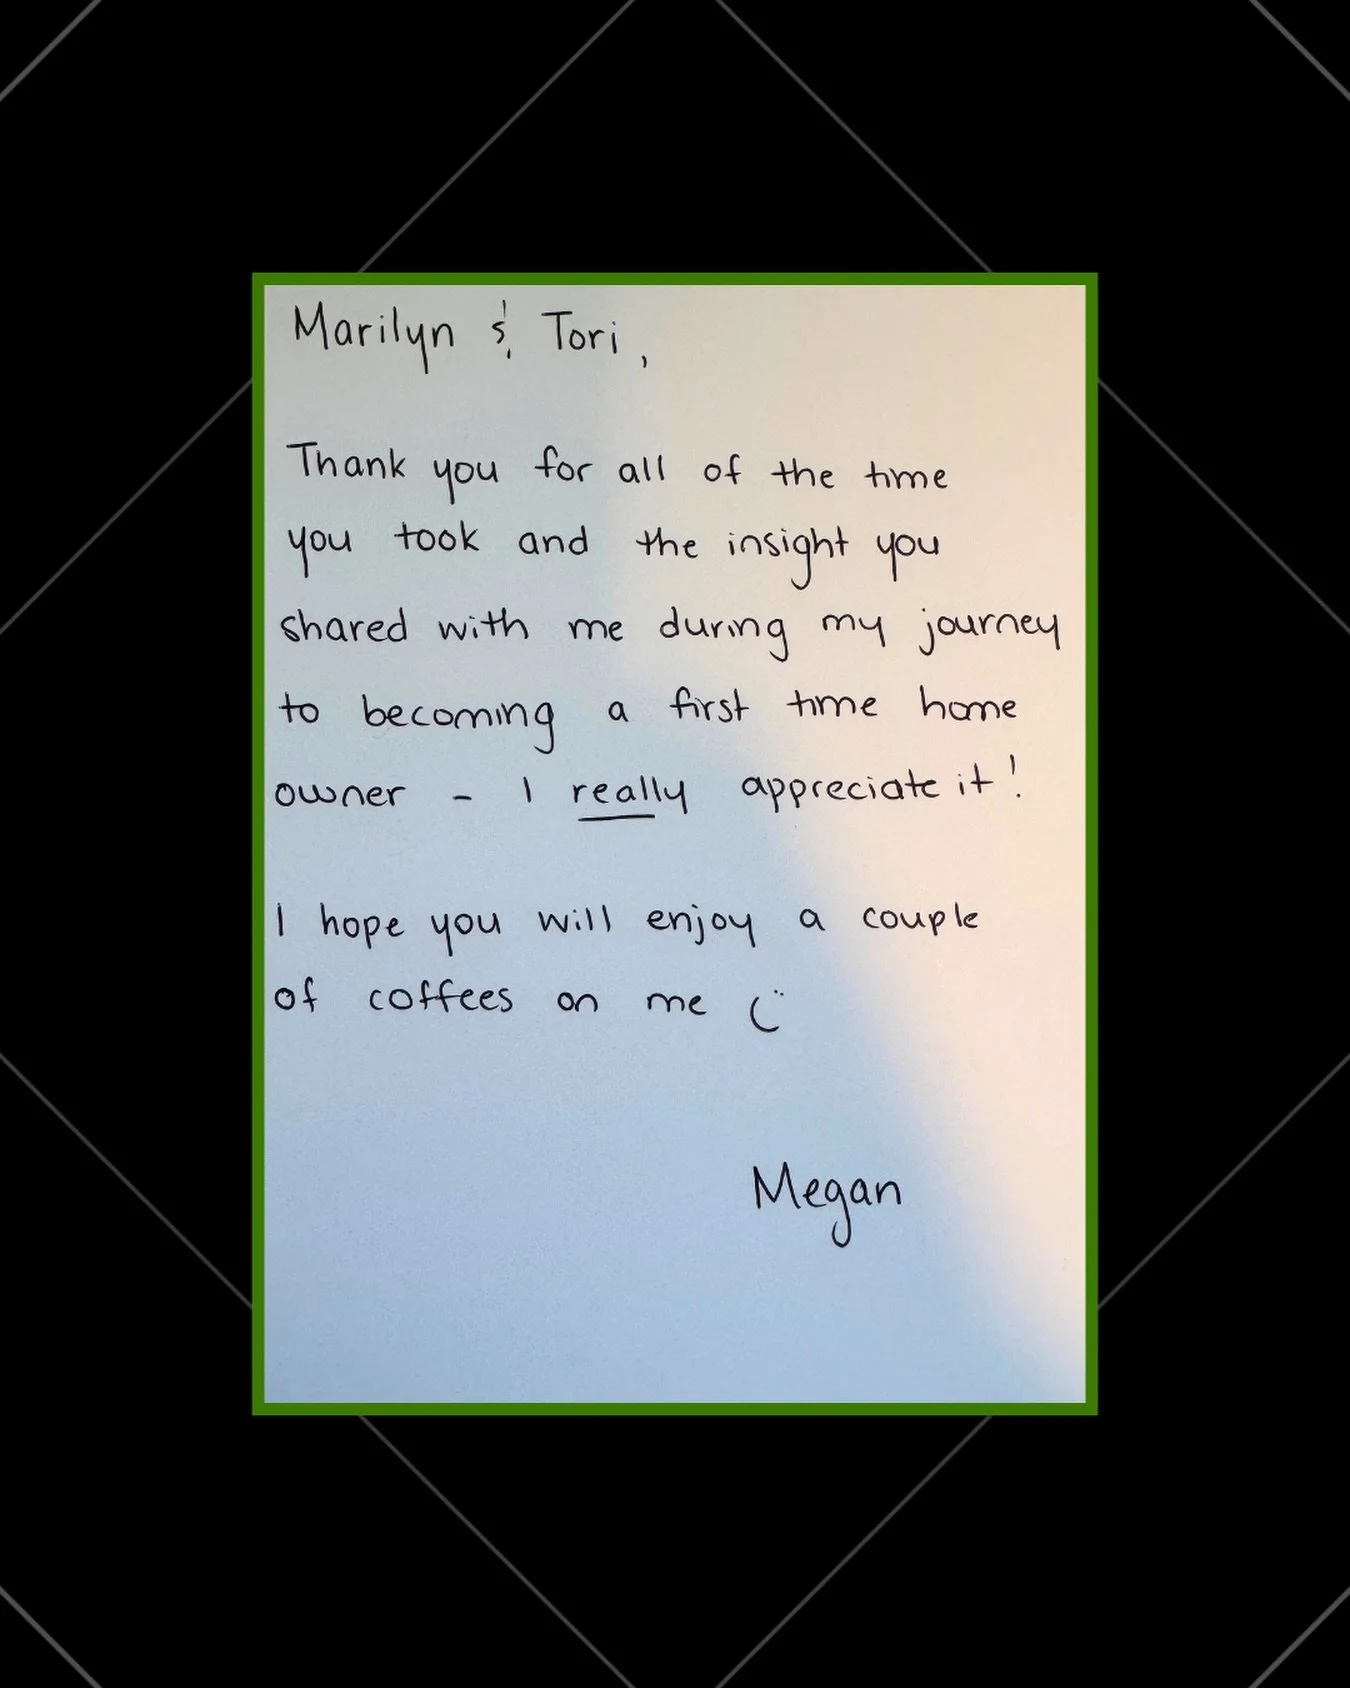 Marilyn & Tori,
Thank you for all of the time
you took and the insight you
shared with me during my journey
to becoming a first time home
owner - I really appreciate it!
I hope you will enjoy a couple
of coffees on me (:
Megan